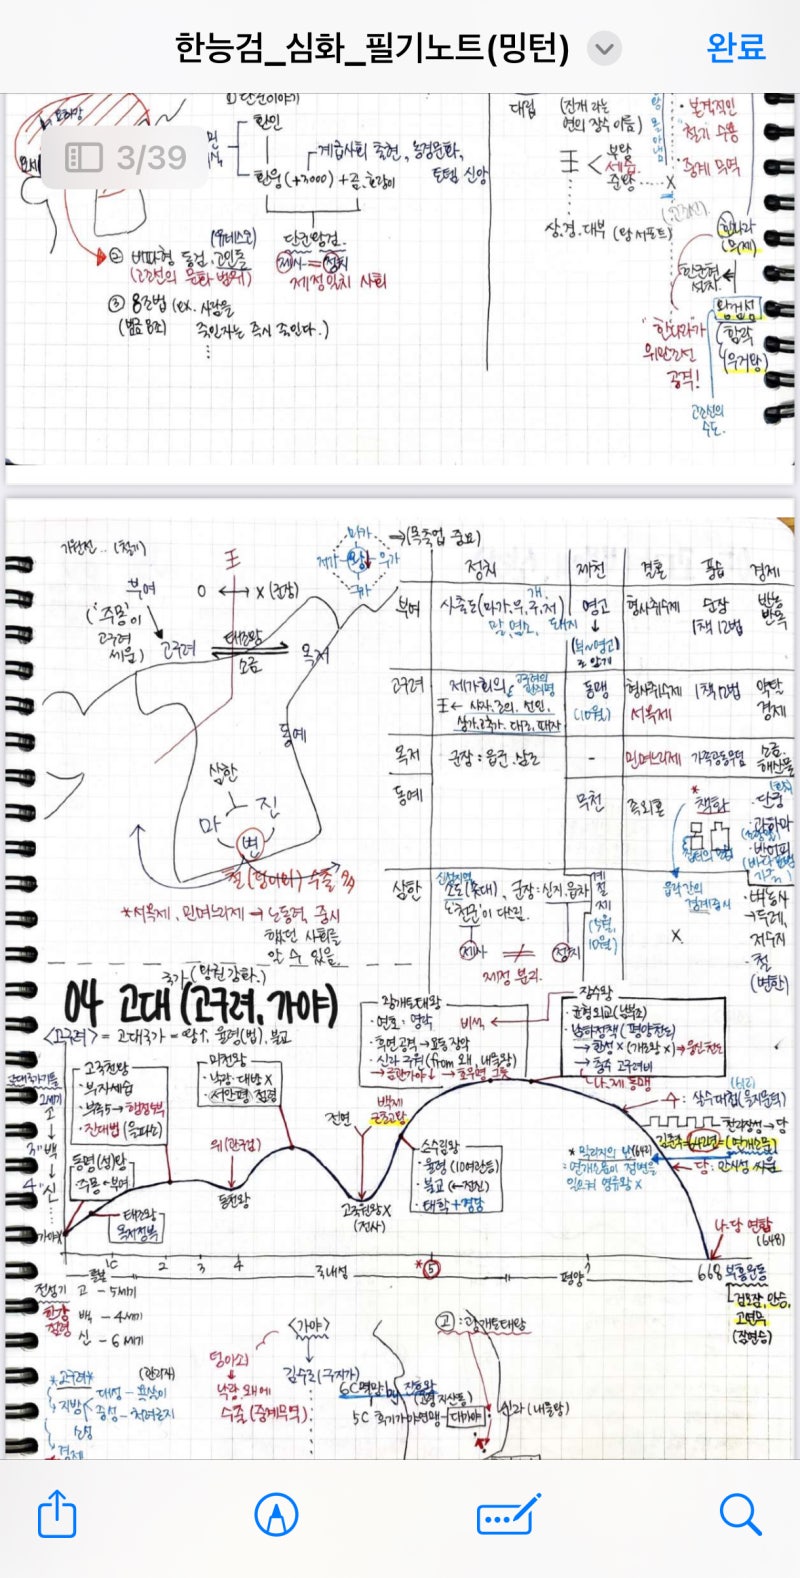 한능검_심화_필기노트(밍턴)
완료
3/39
① 단군이야기
환인
환웅(+3000) + 곰, 호랑이
계급사회 출현, 농경문화,
토템 신앙
단군왕검
제사 = 정치
제정일치 사회
② 비파형 동검, 고인돌
(고조선의 문화 범위)
③ 8조법 (ex. 사람을
(범금 8조) 죽인자는 즉시 죽인다.)
대립
(진개 라는
연의 장수 이름)
王
부왕
준왕
X
상, 경, 대부 (왕 서포트)
· 본격적인
철기 수용
· 중계 무역
한나라
(무제)
한군현
설치
왕검성
함락
(우거왕)
"한나라가
위만조선
공격!
고조선의
수도
(철기)
王
부여
O ↔ X (군장)
('주몽'이
고구려
세움)
고구려
태조왕
소금
옥저
동예
삼한
마
진
변
철(덩이쇠) 수출
마가
저가
왕
우가
구가
→(목축업 중요)
정치
제천
결혼
풍습
경제
부여
사출도(마가, 우, 구, 저)
개
말, 염소, 돼지
영고
형사취수제
순장
1책 12법
반농
반목
고구려
제가회의
王 ← 사자, 조의, 선인
상가, 고추가, 대로, 패자
동맹
(10월)
형사취수제
서옥제
1책 12법
약탈
경제
옥저
군장 : 읍군, 삼로
-
민며느리제
가족공동무덤
소금,
해산물
동예
무천
족외혼
* 책화
· 단궁
· 과하마
· 반어피
읍락간의
경계 중시
삼한
신성지역
소도(솟대), 군장 : 신지, 읍차
'천군'이 다스림
제사 ≠ 정치
제정 분리
계절제
(5월,
10월)
X
· 벼농사
→ 두레,
저수지
· 철
(변한)
*서옥제, 민며느리제 → 노동력 중시
했던 사회를
알 수 있음
국가(왕권강화)
04 고대 (고구려, 가야)
<고구려> = 고대국가 = 왕↑, 율령(법), 불교
고국천왕
· 부자세습
· 부족5 → 행정5부
· 진대법(을파소)
동명(성)왕
: 주몽 ← 부여
태조왕
옥저정복
미천왕
· 낙랑·대방 X
· 서안평 점령
위(관구검)
동천왕
전연
백제
근초고왕
고국원왕 X
(전사)
소수림왕
· 율령
· 불교 (←전진)
· 태학 + 경당
광개토대왕
· 연호 : 영락
· 후연 공격 → 요동 장악
· 신라 구원(from 왜, 내물왕)
→ 금관가야↓ → 호우명 그릇
비석
장수왕
· 균형외교(남북조)
· 남하정책(평양천도)
→ 한성 X (개로왕 X) → 웅진천도
→ 충주 고구려비
나·제 동맹
수 : 살수대첩(을지문덕)
(612)
천리장성 → 당
(연개소문)
* 막리지의 난(642)
: 연개소문이 정변을
일으켜 영류왕 X
당 : 안시성 싸움
나·당 연합
(648)
668
부흥운동
검모잠, 안승,
고연무
(장연승)
1C
2
3
4
*5
7
졸본
국내성
평양
전성기
한강
점령
고 - 5세기
백 - 4세기
신 - 6세기
*고구려*
(관리자)
· 지방
대성 - 욕살이
중성 - 처려근지
소성
· 경제
<가야>
덩이쇠
↓
낙랑, 왜에
수출(중계무역)
김수로(구지가)
5C 후기가야연맹 - 대가야
고 : 광개토대왕
신라(내물왕)